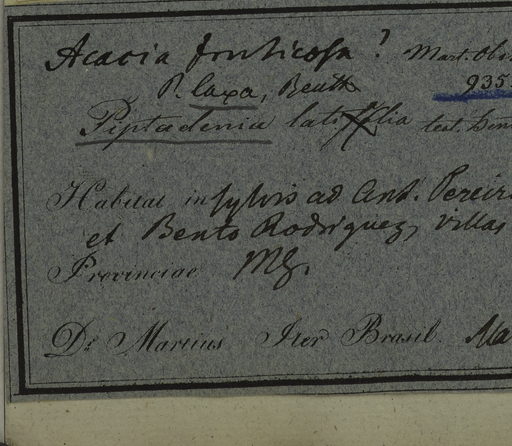 Acacia fruticosa? Mart. Obs
P. laxa, Benth 935
Piptadenia latifolia test. Benth
Habitat in sylvis ad Ant. Pereira
et Bento Rodriguez, villas
Provinciae MG.
Dr. Martius Iter Brasil. Ma